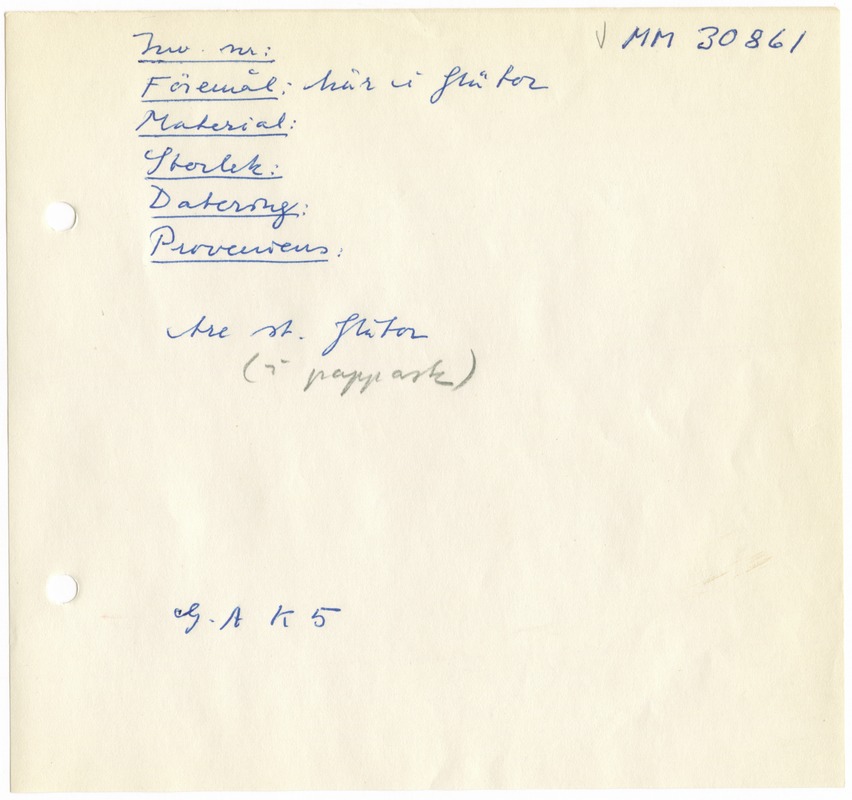 √ MM 30861
Inv. nr:
Föremål: hår i glåtor
Material:
Storlek:
Datering:
Proveniens:
tre st.
(i pappask)
G.A K 5